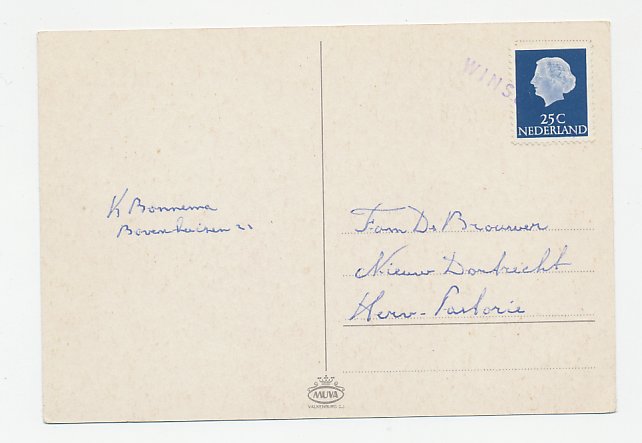 WINS
25 C
NEDERLAND
K Bonnema
Fam Ds Brouwer
Nieuw Dordrecht
Herv. Pastorie
MUVA
VALKENBURG Z.H.